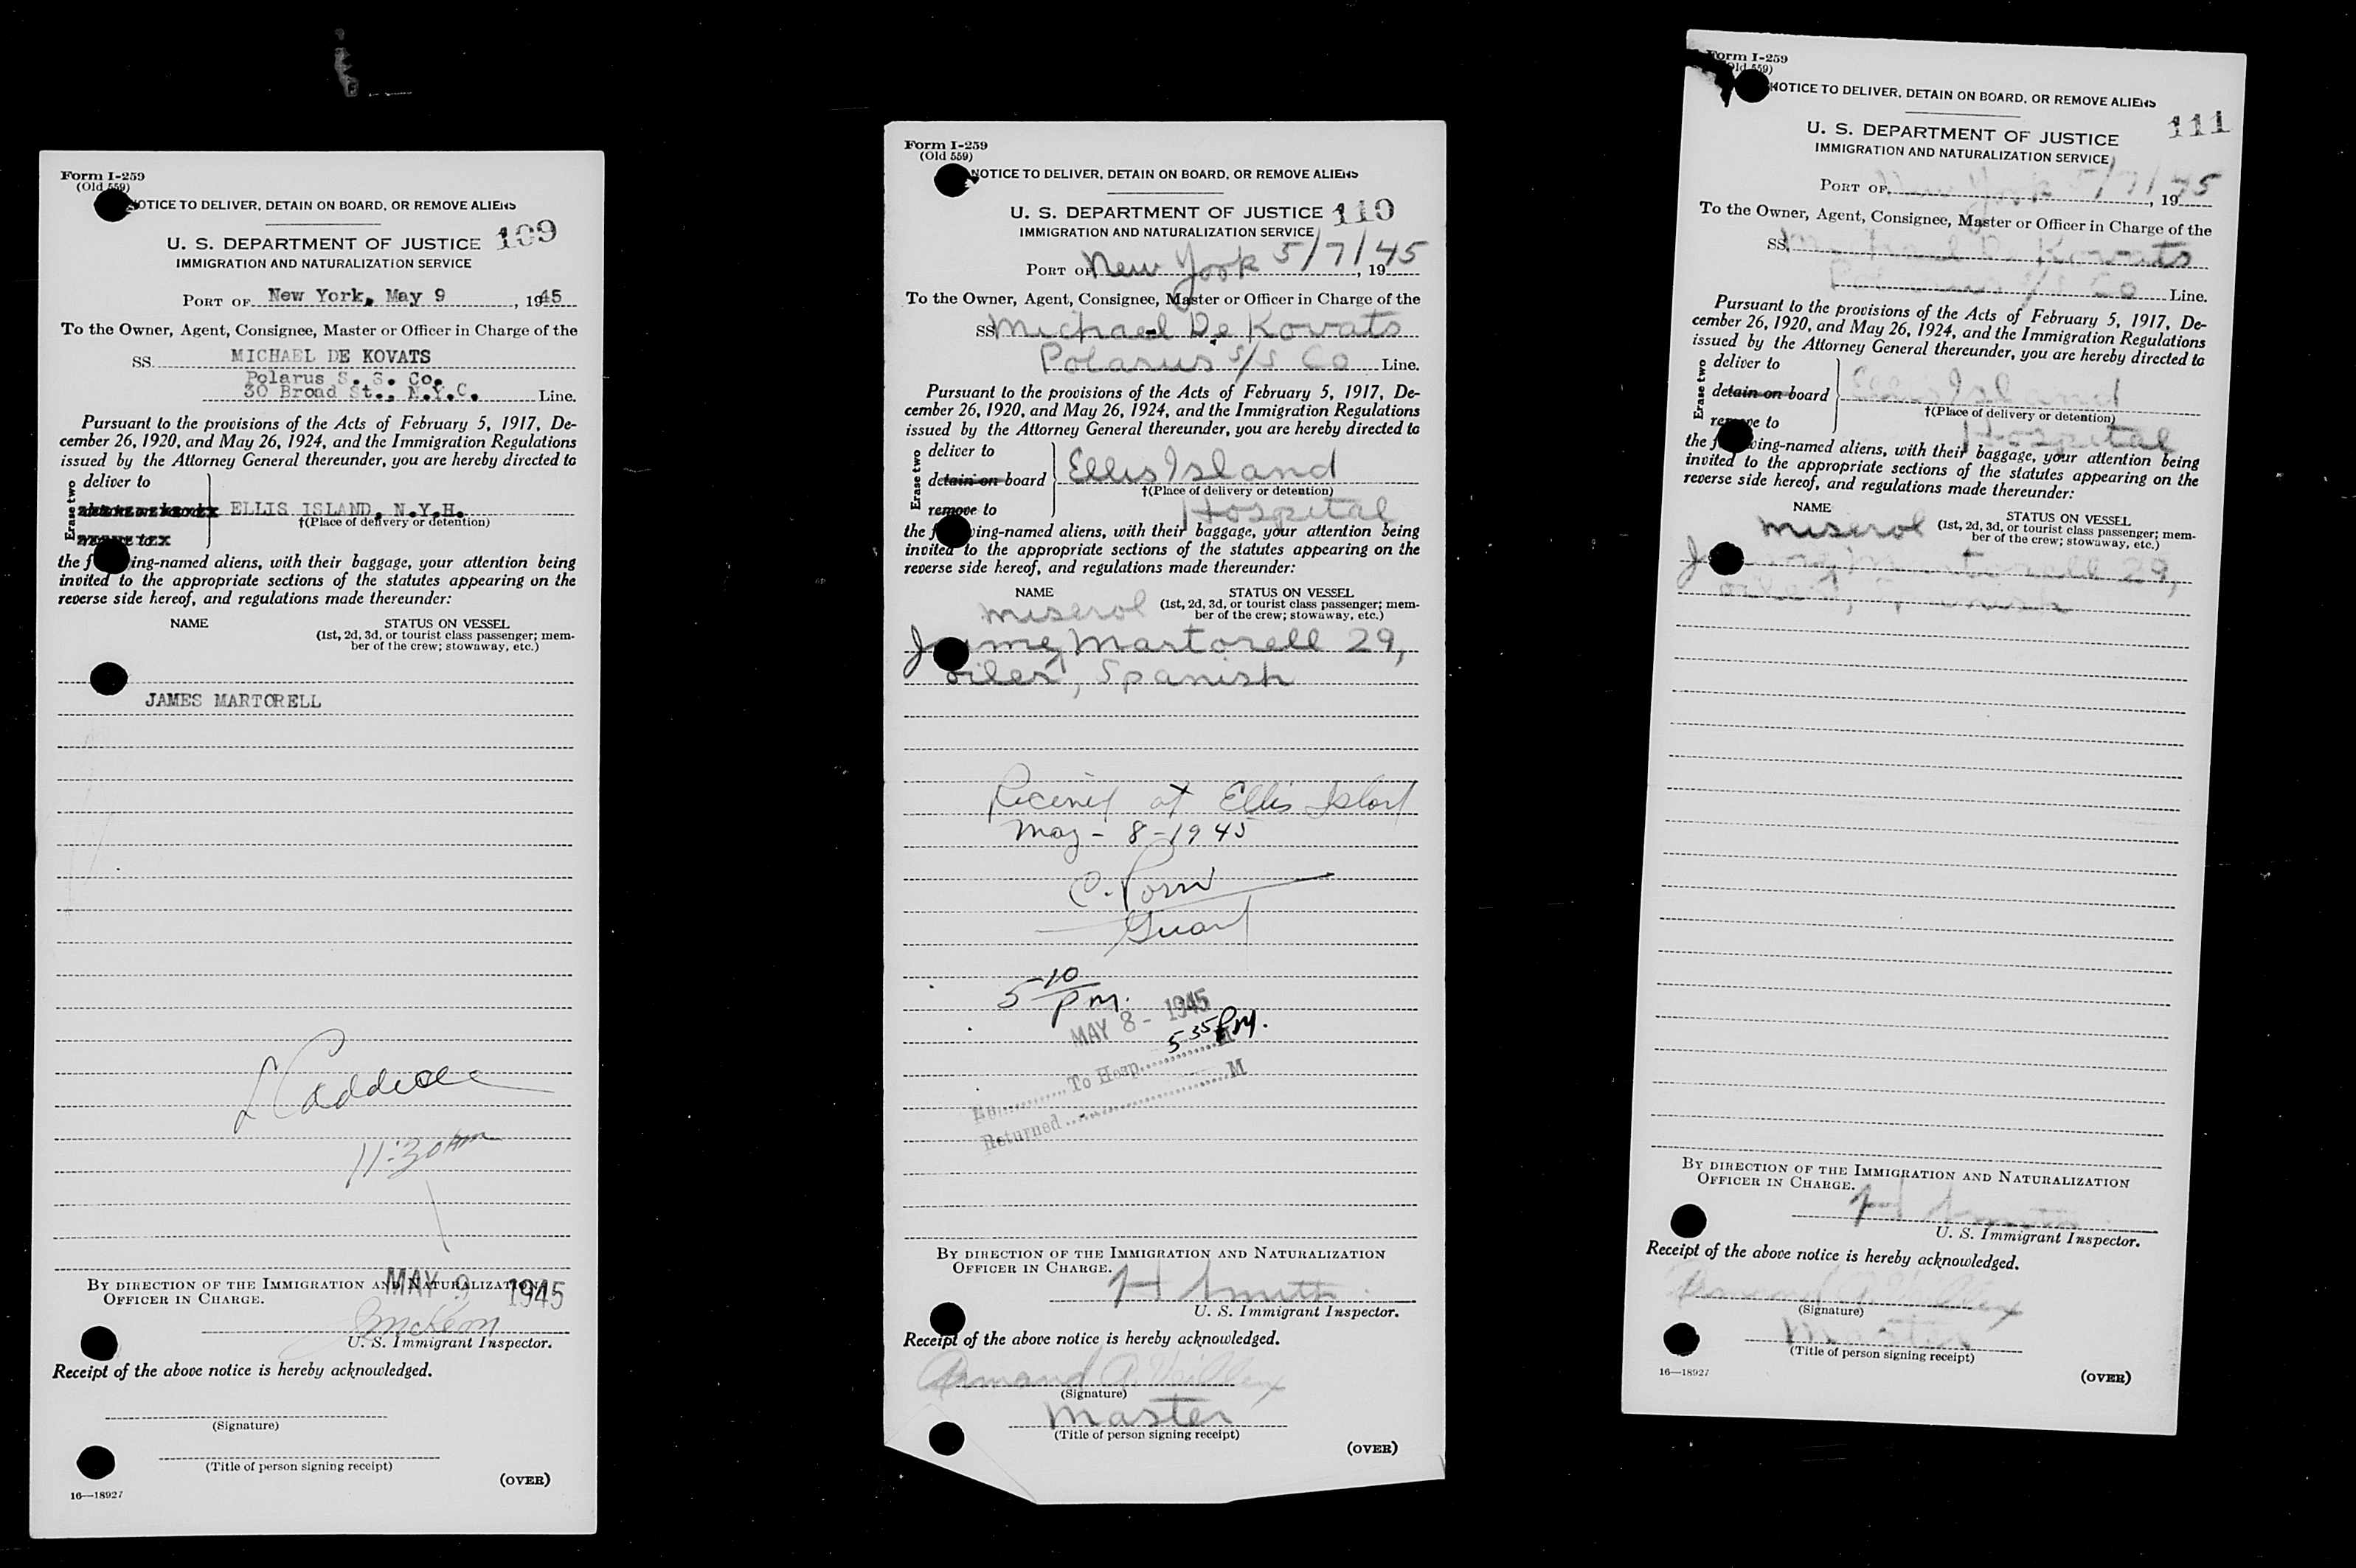 Form I-259
(Old 559)
NOTICE TO DELIVER, DETAIN ON BOARD, OR REMOVE ALIENS
109
U. S. DEPARTMENT OF JUSTICE
IMMIGRATION AND NATURALIZATION SERVICE
PORT OF New York, May 9, 1945
To the Owner, Agent, Consignee, Master or Officer in Charge of the
SS. MICHAEL DE KOVATS
Polarus S. S. Co.
30 Broad St., N.Y.C. Line.
Pursuant to the provisions of the Acts of February 5, 1917, De-
cember 26, 1920, and May 26, 1924, and the Immigration Regulations
issued by the Attorney General thereunder, you are hereby directed to
Erase two
deliver to
ELLIS ISLAND, N.Y.H.
†(Place of delivery or detention)
the f ing-named aliens, with their baggage, your attention being
invited to the appropriate sections of the statutes appearing on the
reverse side hereof, and regulations made thereunder:
NAME STATUS ON VESSEL
(1st, 2d, 3d, or tourist class passenger; mem-
ber of the crew; stowaway, etc.)
JAMES MARTORELL
11:30 AM
MAY 9 1945
BY DIRECTION OF THE IMMIGRATION AND NATURALIZATION
OFFICER IN CHARGE.
U. S. Immigrant Inspector.
Receipt of the above notice is hereby acknowledged.
(Signature)
(Title of person signing receipt)
(OVER)
16—18927
Form I-259
(Old 559)
NOTICE TO DELIVER, DETAIN ON BOARD, OR REMOVE ALIENS
U. S. DEPARTMENT OF JUSTICE 110
IMMIGRATION AND NATURALIZATION SERVICE
PORT OF New York 5/7/45, 19
To the Owner, Agent, Consignee, Master or Officer in Charge of the
SS Michael De Kovats
Polarus S/S Co Line.
Pursuant to the provisions of the Acts of February 5, 1917, De-
cember 26, 1920, and May 26, 1924, and the Immigration Regulations
issued by the Attorney General thereunder, you are hereby directed to
Erase two
deliver to
detain on board Ellis Island
†(Place of delivery or detention)
remove to Hospital
the f ing-named aliens, with their baggage, your attention being
invited to the appropriate sections of the statutes appearing on the
reverse side hereof, and regulations made thereunder:
NAME STATUS ON VESSEL
miserol (1st, 2d, 3d, or tourist class passenger; mem-
ber of the crew; stowaway, etc.)
Jaime Martorell 29,
oiler, Spanish
Received at Ellis Island
May - 8 - 1945
Guard
5 10 P M.
MAY 8 - 1945
5 35 P.M.
To Hosp. M
Returned M
BY DIRECTION OF THE IMMIGRATION AND NATURALIZATION
OFFICER IN CHARGE.
H Smith
U. S. Immigrant Inspector.
Receipt of the above notice is hereby acknowledged.
Armand
(Signature)
Master
(Title of person signing receipt)
(OVER)
Form I-259
(Old 559)
NOTICE TO DELIVER, DETAIN ON BOARD, OR REMOVE ALIENS
111
U. S. DEPARTMENT OF JUSTICE
IMMIGRATION AND NATURALIZATION SERVICE
PORT OF New York 5/7/45, 19
To the Owner, Agent, Consignee, Master or Officer in Charge of the
SS. Michael De Kovats
Polarus S/S Co Line.
Pursuant to the provisions of the Acts of February 5, 1917, De-
cember 26, 1920, and May 26, 1924, and the Immigration Regulations
issued by the Attorney General thereunder, you are hereby directed to
Erase two
deliver to
detain on board Ellis Island
†(Place of delivery or detention)
remove to Hospital
the f ing-named aliens, with their baggage, your attention being
invited to the appropriate sections of the statutes appearing on the
reverse side hereof, and regulations made thereunder:
NAME STATUS ON VESSEL
miserol (1st, 2d, 3d, or tourist class passenger; mem-
ber of the crew; stowaway, etc.)
Martorell 29,
BY DIRECTION OF THE IMMIGRATION AND NATURALIZATION
OFFICER IN CHARGE.
H Smith
U. S. Immigrant Inspector.
Receipt of the above notice is hereby acknowledged.
Armand
(Signature)
Master
(Title of person signing receipt)
16—18927
(OVER)